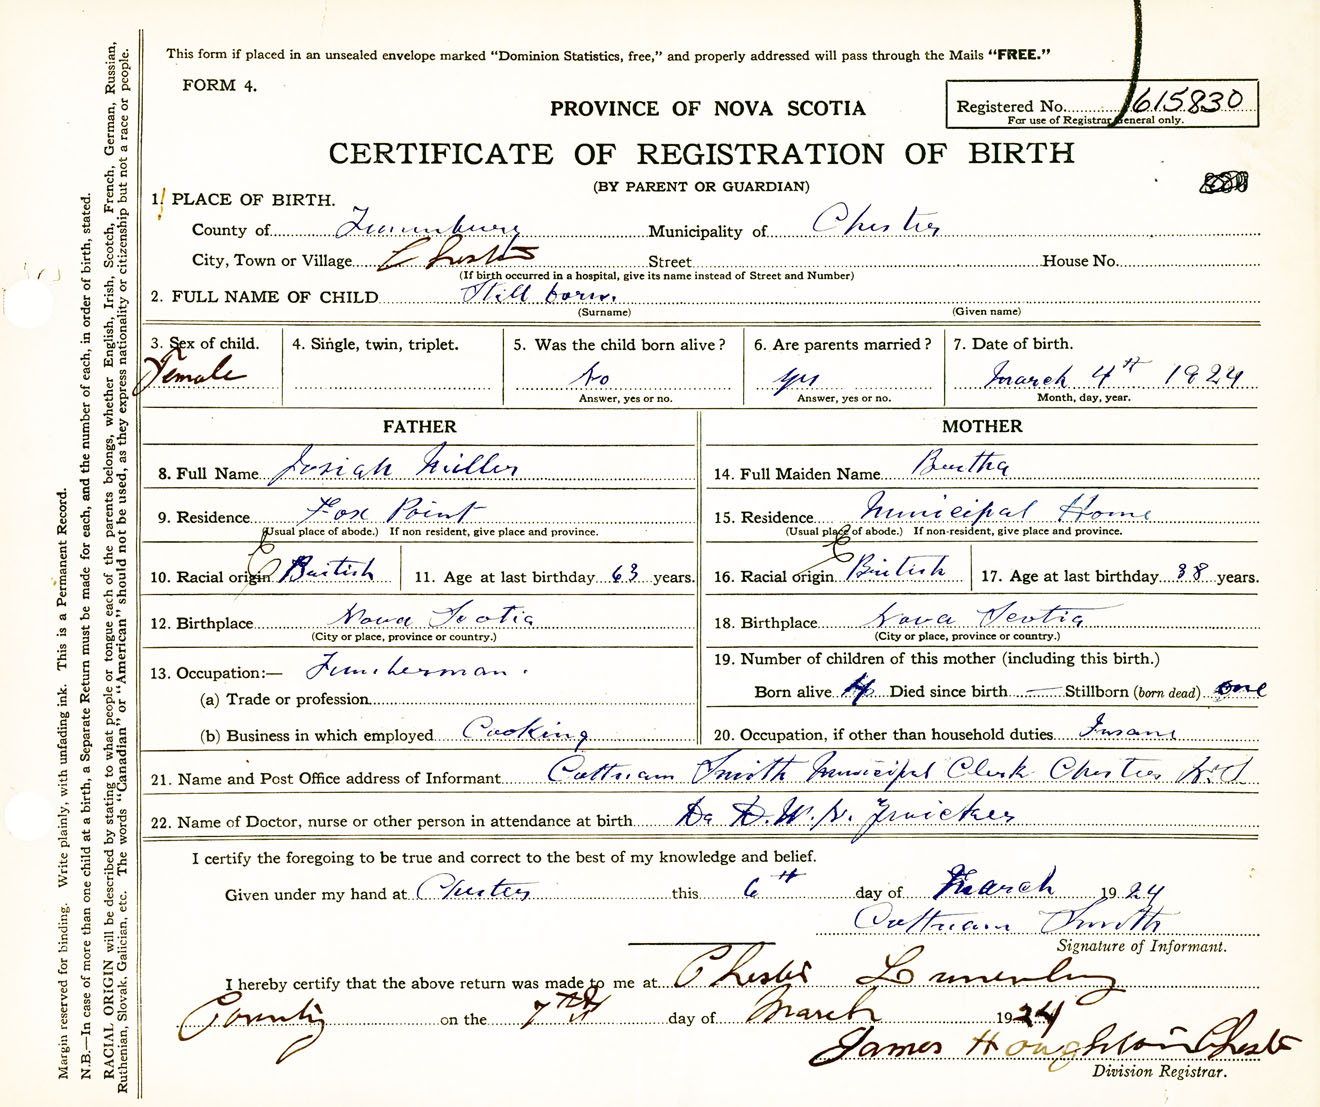 This form if placed in an unsealed envelope marked "Dominion Statistics, free," and properly addressed will pass through the Mails "FREE."
FORM 4.
PROVINCE OF NOVA SCOTIA
Registered No. 615830
For use of Registrar General only.
CERTIFICATE OF REGISTRATION OF BIRTH
(BY PARENT OR GUARDIAN)
1. PLACE OF BIRTH.
County of Lunenburg Municipality of Chester
City, Town or Village Chester Street House No.
(If birth occurred in a hospital, give its name instead of Street and Number)
2. FULL NAME OF CHILD Still born.
(Surname) (Given name)
3. Sex of child. 4. Single, twin, triplet. 5. Was the child born alive? 6. Are parents married? 7. Date of birth.
Female No yes March 4th 1924
Answer, yes or no. Answer, yes or no. Month, day, year.
FATHER MOTHER
8. Full Name Josiah Miller 14. Full Maiden Name Bertha
9. Residence Fox Point 15. Residence Municipal Home
(Usual place of abode.) If non resident, give place and province. (Usual place of abode.) If non-resident, give place and province.
10. Racial origin British 11. Age at last birthday 63 years. 16. Racial origin British 17. Age at last birthday 38 years.
12. Birthplace Nova Scotia 18. Birthplace Nova Scotia
(City or place, province or country.) (City or place, province or country.)
13. Occupation:— Lumberman. 19. Number of children of this mother (including this birth.)
(a) Trade or profession Born alive 4 Died since birth — Stillborn (born dead) one
(b) Business in which employed Cooking 20. Occupation, if other than household duties Insane
21. Name and Post Office address of Informant Cottnam Smith Municipal Clerk Chester N.S
22. Name of Doctor, nurse or other person in attendance at birth Dr D. W. N. Zwicker
I certify the foregoing to be true and correct to the best of my knowledge and belief.
Given under my hand at Chester this 6th day of March 1924
Cottnam Smith
Signature of Informant.
I hereby certify that the above return was made to me at Chester Lunenburg
County on the 7th day of March 1924
James Houghton Chester
Division Registrar.
Margin reserved for binding. Write plainly, with unfading ink. This is a Permanent Record.
N.B.—In case of more than one child at a birth, a Separate Return must be made for each, and the number of each, in order of birth, stated.
RACIAL ORIGIN will be described by stating to what people or tongue each of the parents belongs, whether English, Irish, Scotch, French, German, Russian,
Ruthenian, Slovak, Galician, etc. The words "Canadian" or "American" should not be used, as they express nationality or citizenship but not a race or people.